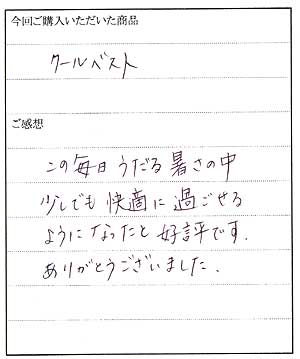 今回ご購入いただいた商品
クールベスト
ご感想
この毎日うだる暑さの中
少しでも快適に過ごせる
ようになったと好評です.
ありがとうございました.